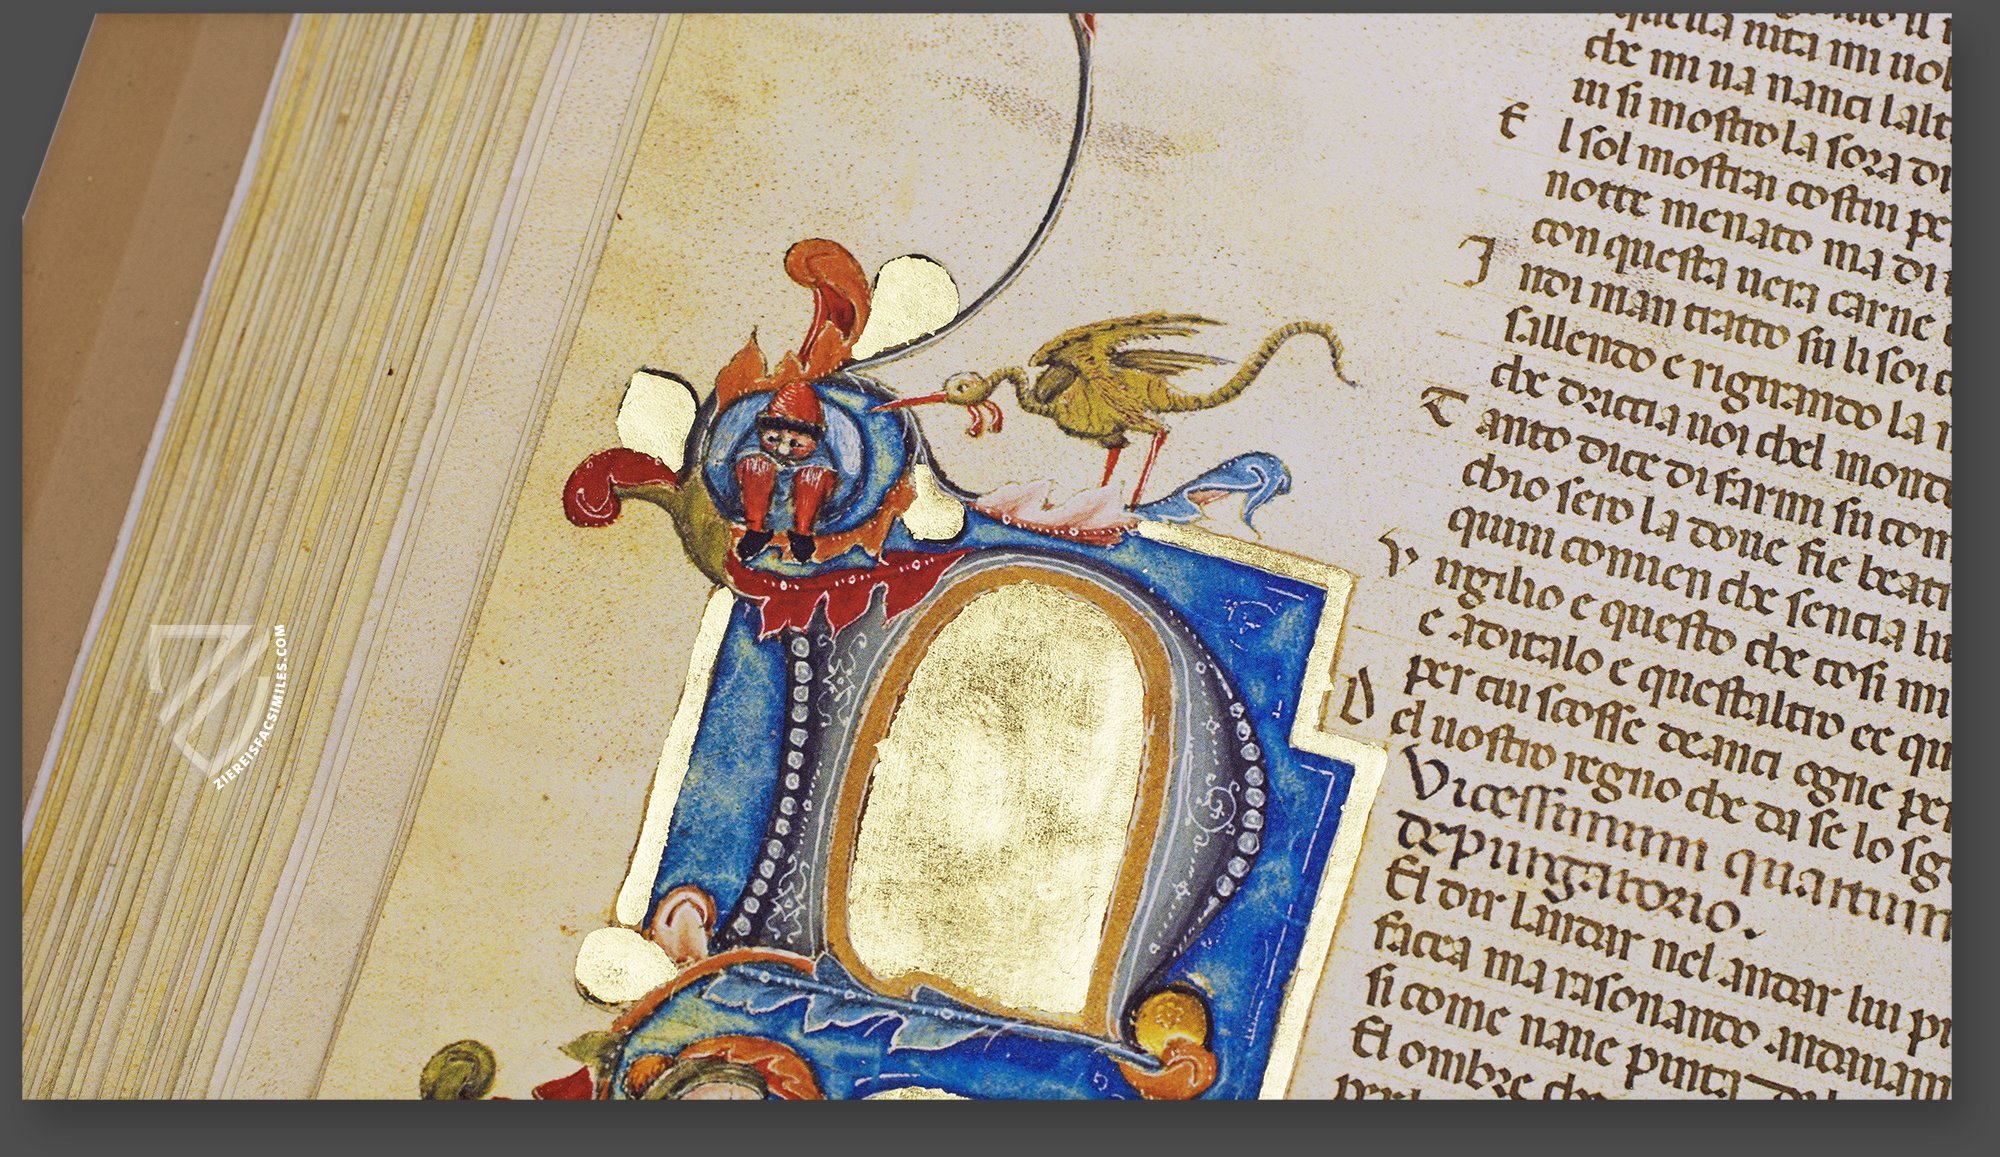 quella uita mi uol
che mi ua nanci lalt
ui si mostro la sora di
E l sol mostrai costui pe
notte menato ma di
con questa uera carne
I ndi man tratto su li soi c
sallendo e rigirando la
che driccia uoi chel mond
T anto dice di farmi su com
chio sero la doue fie beati
quiui conuien che sencia lu
V irgilio e questo che cosi mi
e aditalo e questaltro ee qu
per cui scosse deanci ogne pe
D el uostro regno che da se lo sg
Vicessimum quartum
de purgatorio.
El dir landar nel andar lui
facea ma rasonando andauam
si come naue pinta
El ombre che